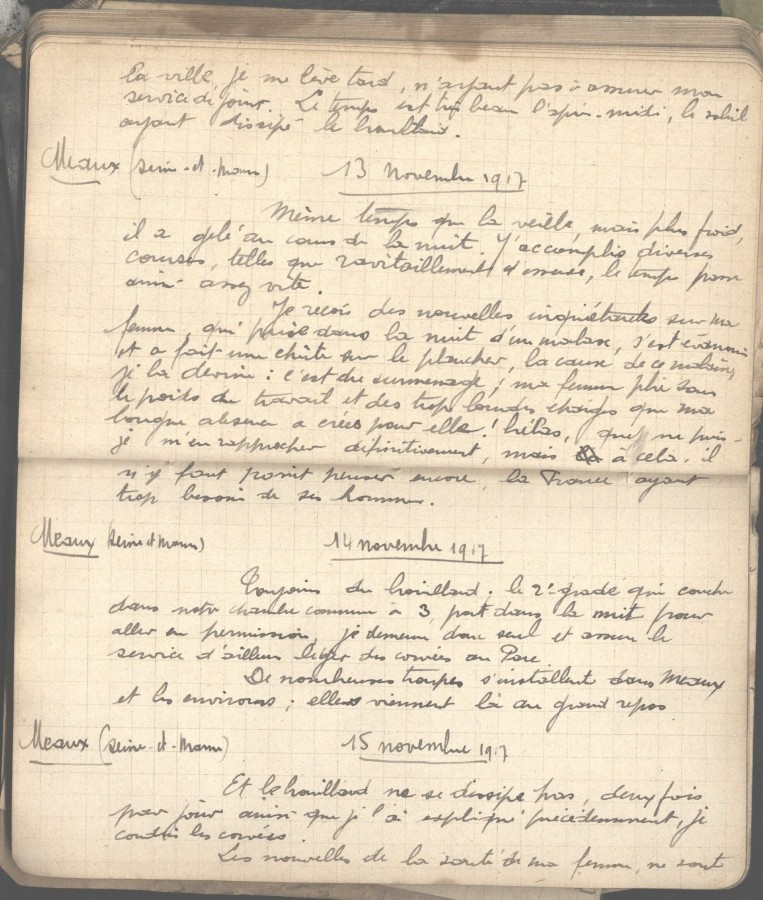 la ville, je me lève tard, n'ayant pas à assurer mon
service de jour. Le temps est très beau l'après-midi, le soleil
ayant dissipé le brouillard.
Meaux (Seine-et-Marne) 13 Novembre 1917
Même temps que la veille, mais plus froid,
il a gelé au cours de la nuit. J'accomplis diverses
corvées, telles que ravitaillement d'essence, le temps passe
ainsi assez vite.
Je reçois des nouvelles inquiétantes sur ma
femme, qui prise dans la nuit d'un malaise, s'est évanouie
et a fait une chute sur le plancher, la cause de ce malaise,
je la devine : c'est du surmenage ; ma femme plie sous
le poids du travail et des trop lourdes charges que ma
longue absence a créées pour elle ! hélas, que ne puis-
je m'en rapprocher définitivement, mais à cela il
n'y faut point penser encore, la France ayant
trop besoin de ses hommes.
Meaux (Seine et Marne) 14 novembre 1917
Toujours du brouillard. le 2e gradé qui couche
dans notre chambre commune à 3, part dans la nuit pour
aller en permission, je demeure donc seul et assure le
service d'ailleurs léger des corvées au Parc.
De nombreuses troupes s'installent dans Meaux
et les environs ; elles viennent là au grand repos
Meaux (Seine-et-Marne) 15 novembre 1917
Et le brouillard ne se dissipe pas, deux fois
par jour ainsi que je l'ai expliqué précédemment, je
conduis les corvées.
Les nouvelles de la santé de ma femme, ne sont